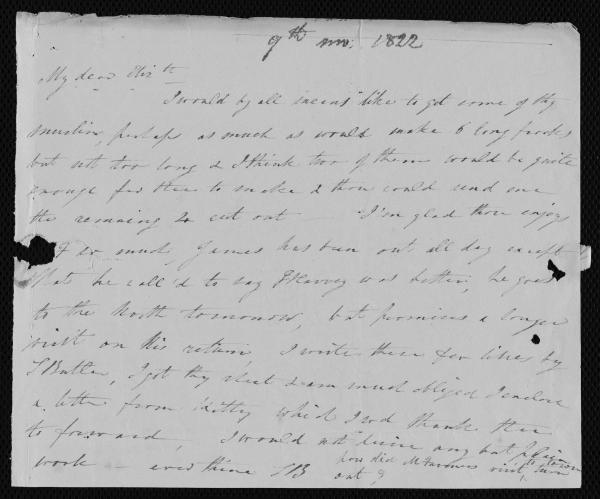 9th mo. 1822
My dear Elizth
I would by all means like to get some of thy
muslin, perhaps as much as would make 6 long frocks
but not too long & I think two of them would be quite
enough for thee to make & thou could send me
the remaining to cut out I'm glad thou enjoys
so much, James has been out all day except
that he call'd to say J Harvey was better, he goes
to the North tomorrow, but promises a longer
visit on his return, I write these few lines by
T Butler, I got thy sheet & am much obliged I enclose
a letter from Kitty which I wd thank thee
to forward, I would not desire any but plain
work – ever thine SB
how did visit to town turn
out?